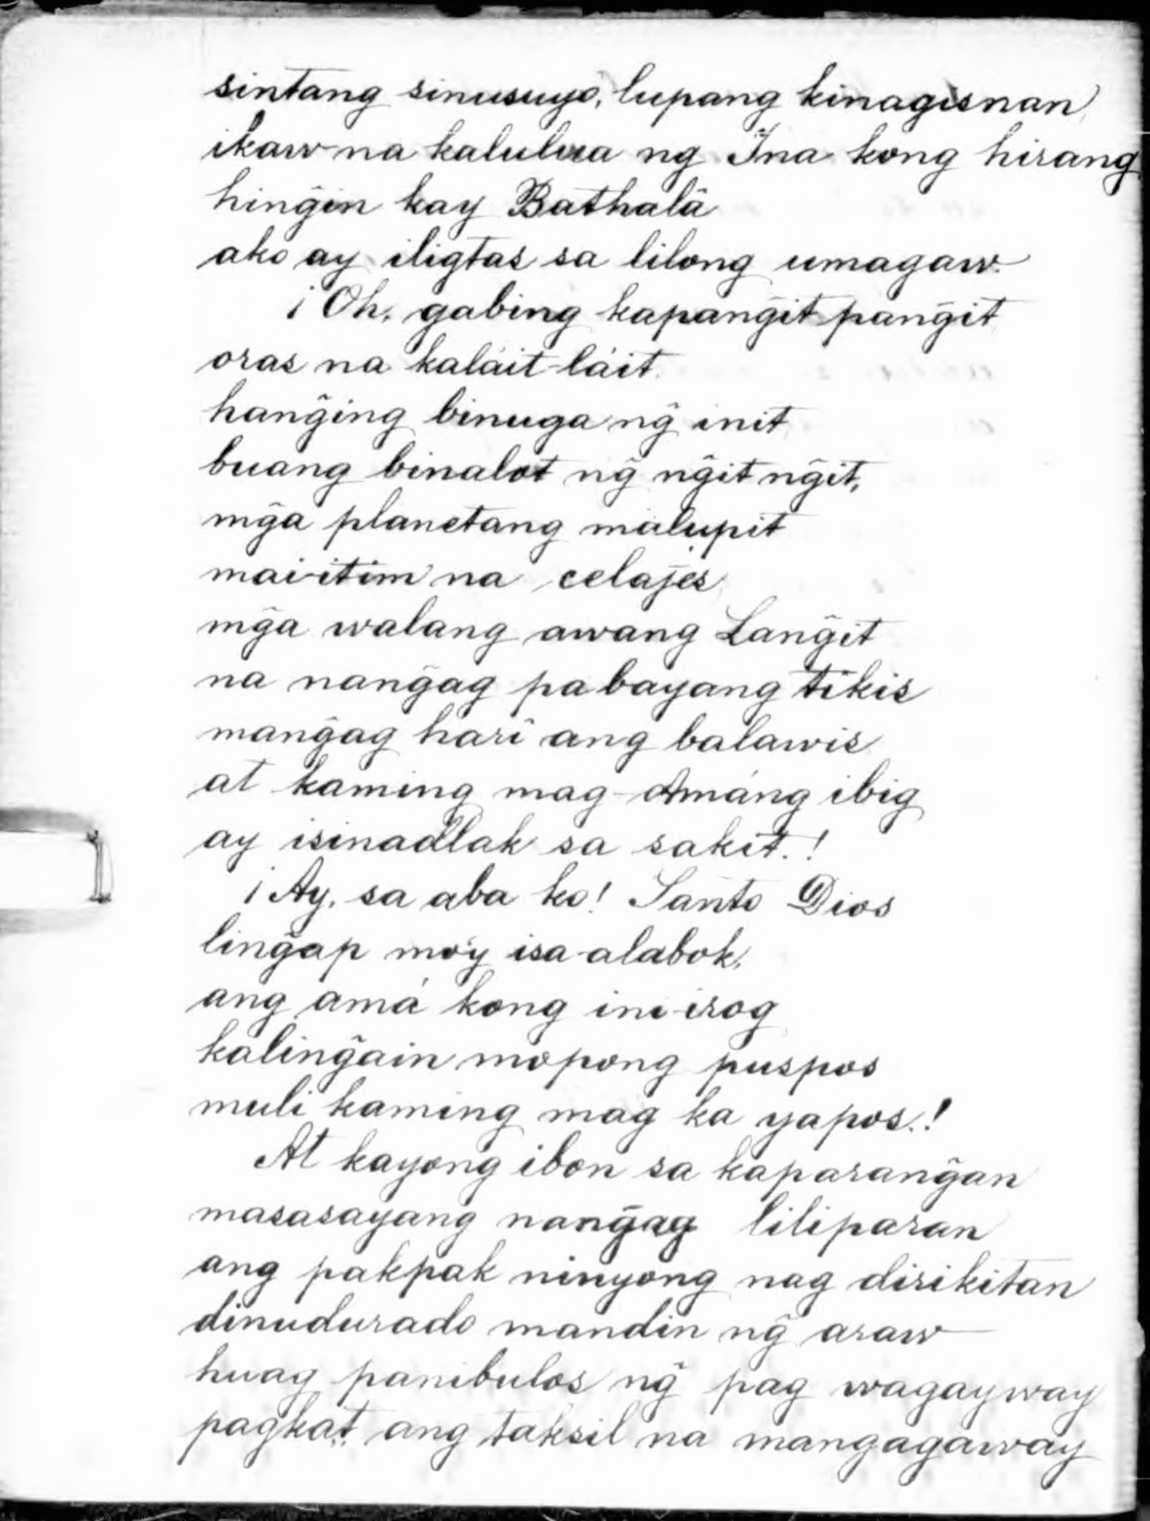 sintang sinusuyò, lupang kinagisnan,
ikaw na kalulua ng Ina kong hirang
hing̃in kay Bathalâ
ako ay iligtas sa lilong umagaw.
¡Oh, gabing kapang̃it pang̃it
oras na kaláit-láit.
hang̃ing binuga ng̃ init
buang binalot ng̃ ng̃it ng̃it,
mg̃a planetang malupit
mai-itim na celajes
mg̃a walang awang Lang̃it
na nang̃ag pabayang tikis
mang̃ag harî ang balawis
at kaming mag-Amáng ibig
ay isinadlak sa sakit.!
¡Ay, sa aba ko! Santo Dios
ling̃ap mo'y isa-alabok,
ang amá kong ini-irog
kaling̃ain mopong puspos
muli kaming mag ka yapos.!
At kayong ibon sa kaparang̃an
masasayang nang̃ag liliparan
ang pakpak ninyong nag dirikitan
dinudurado mandin ng̃ araw
huag panibulos ng̃ pag wagayway
pagkat ang taksil na mangagaway